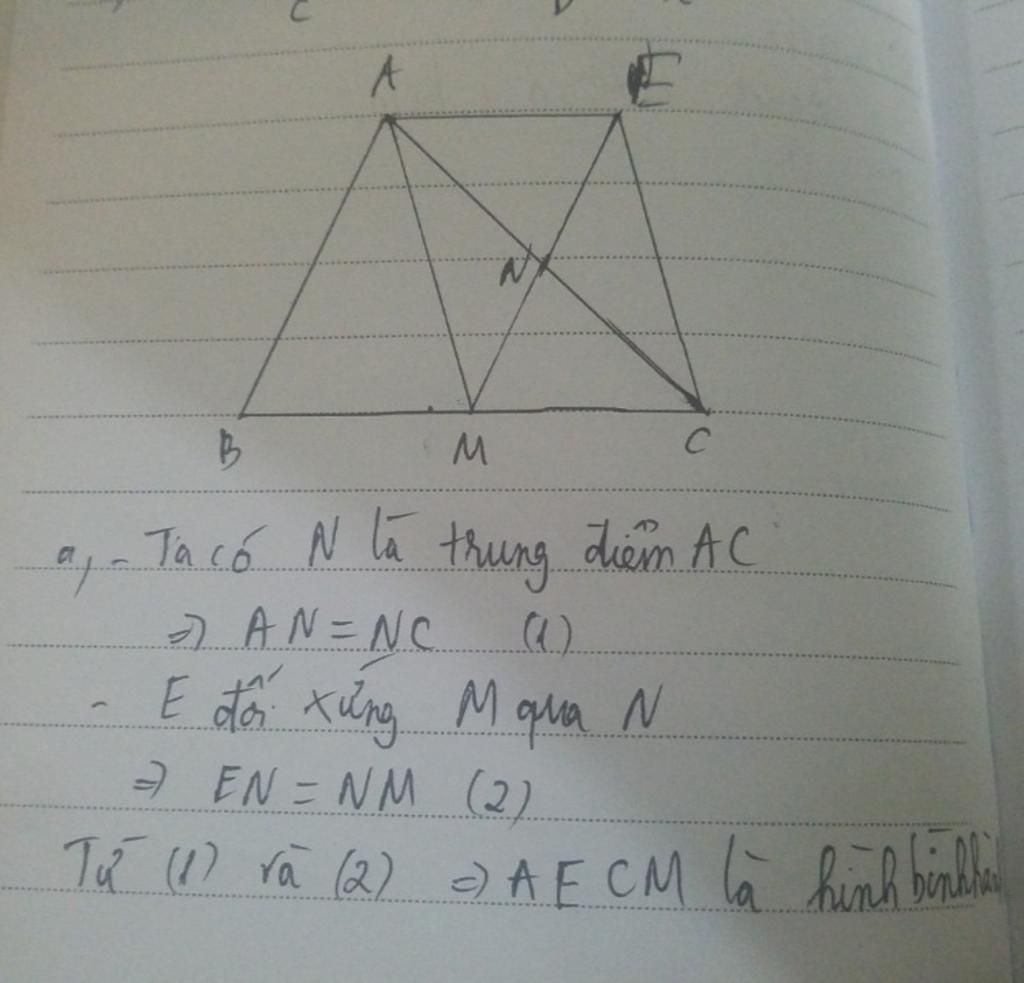 A E
N
B M C
a, - Ta có N là trung điểm AC
=> AN = NC (1)
- E đối xứng M qua N
=> EN = NM (2)
Từ (1) và (2) => AECM là hình bình hàn